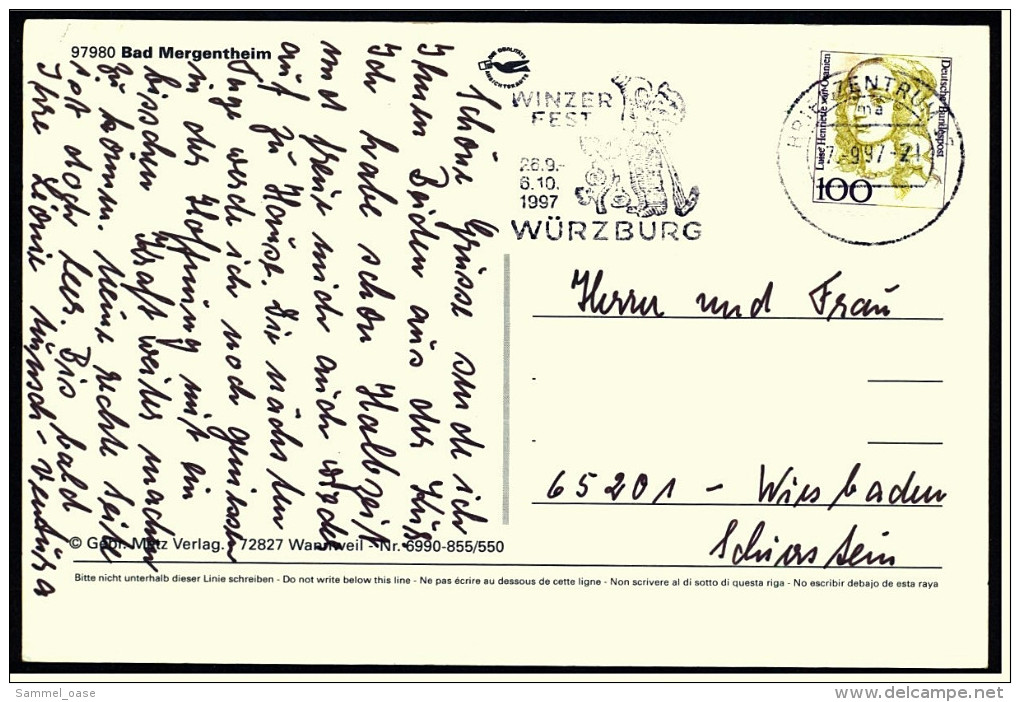 97980 Bad Mergentheim
Schöne Grüsse sende ich
Ihnen Beiden aus der Kur
Ich habe schon Halbzeit
und freue mich auch wieder
auf zu Hause. Die nächsten
Tage werde ich noch geniessen
in der Hoffnung mit ein
bisschen Kraft weiter machen
zu können. Meine rechte Seite
ist doch leer. Bis bald
Ihre Leonie
WINZER
FEST
26.9.-
6.10.
1997
WÜRZBURG
BRIEFZENTRUM
ma
9.97-21
Deutsche Bundespost
Luise Henriette von Oranien
100
Herrn und Frau
65201 - Wiesbaden
Schierstein
© Gebr. Metz Verlag · 72827 Wannweil - Nr. 6990-855/550
Bitte nicht unterhalb dieser Linie schreiben - Do not write below this line - Ne pas écrire au dessous de cette ligne - Non scrivere al di sotto di questa riga - No escribir debajo de esta raya
Sammel_oase
www.delcampe.net